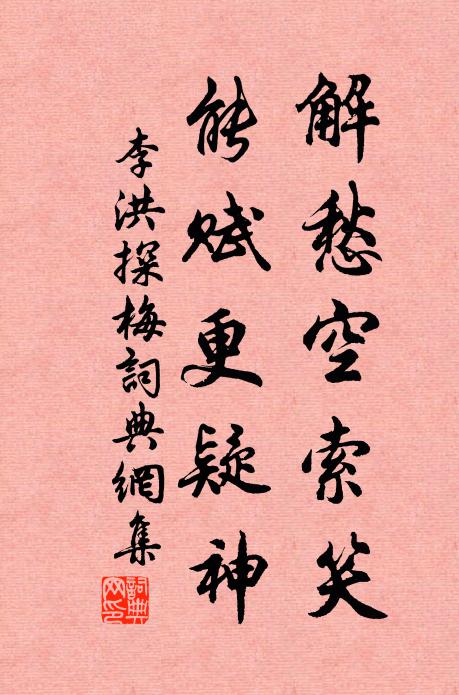 解愁空索笑
能赋更疑神
李洪探梅詞典網集
詞典网印